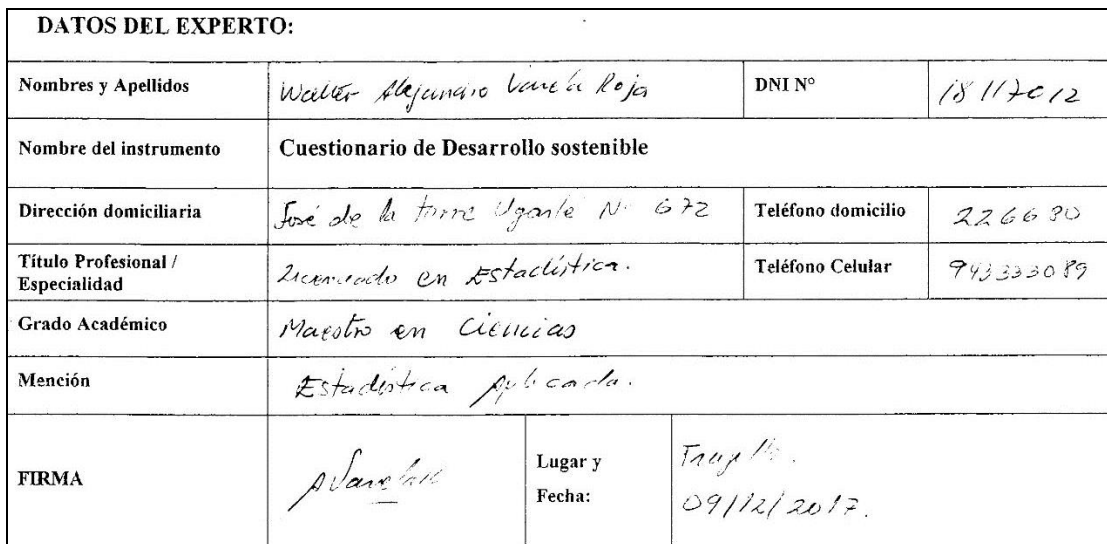 DATOS DEL EXPERTO:
Nombres y Apellidos
Walter Alejandro Varela Roja
DNI N°
18117012
Nombre del instrumento
Cuestionario de Desarrollo sostenible
Dirección domiciliaria
José de la torre Ugarte N° 672
Teléfono domicilio
226680
Título Profesional /
Especialidad
Licenciado en Estadística.
Teléfono Celular
943333089
Grado Académico
Maestro en Ciencias
Mención
Estadística Aplicada.
FIRMA
Lugar y
Fecha:
Trujillo.
09/12/2017.